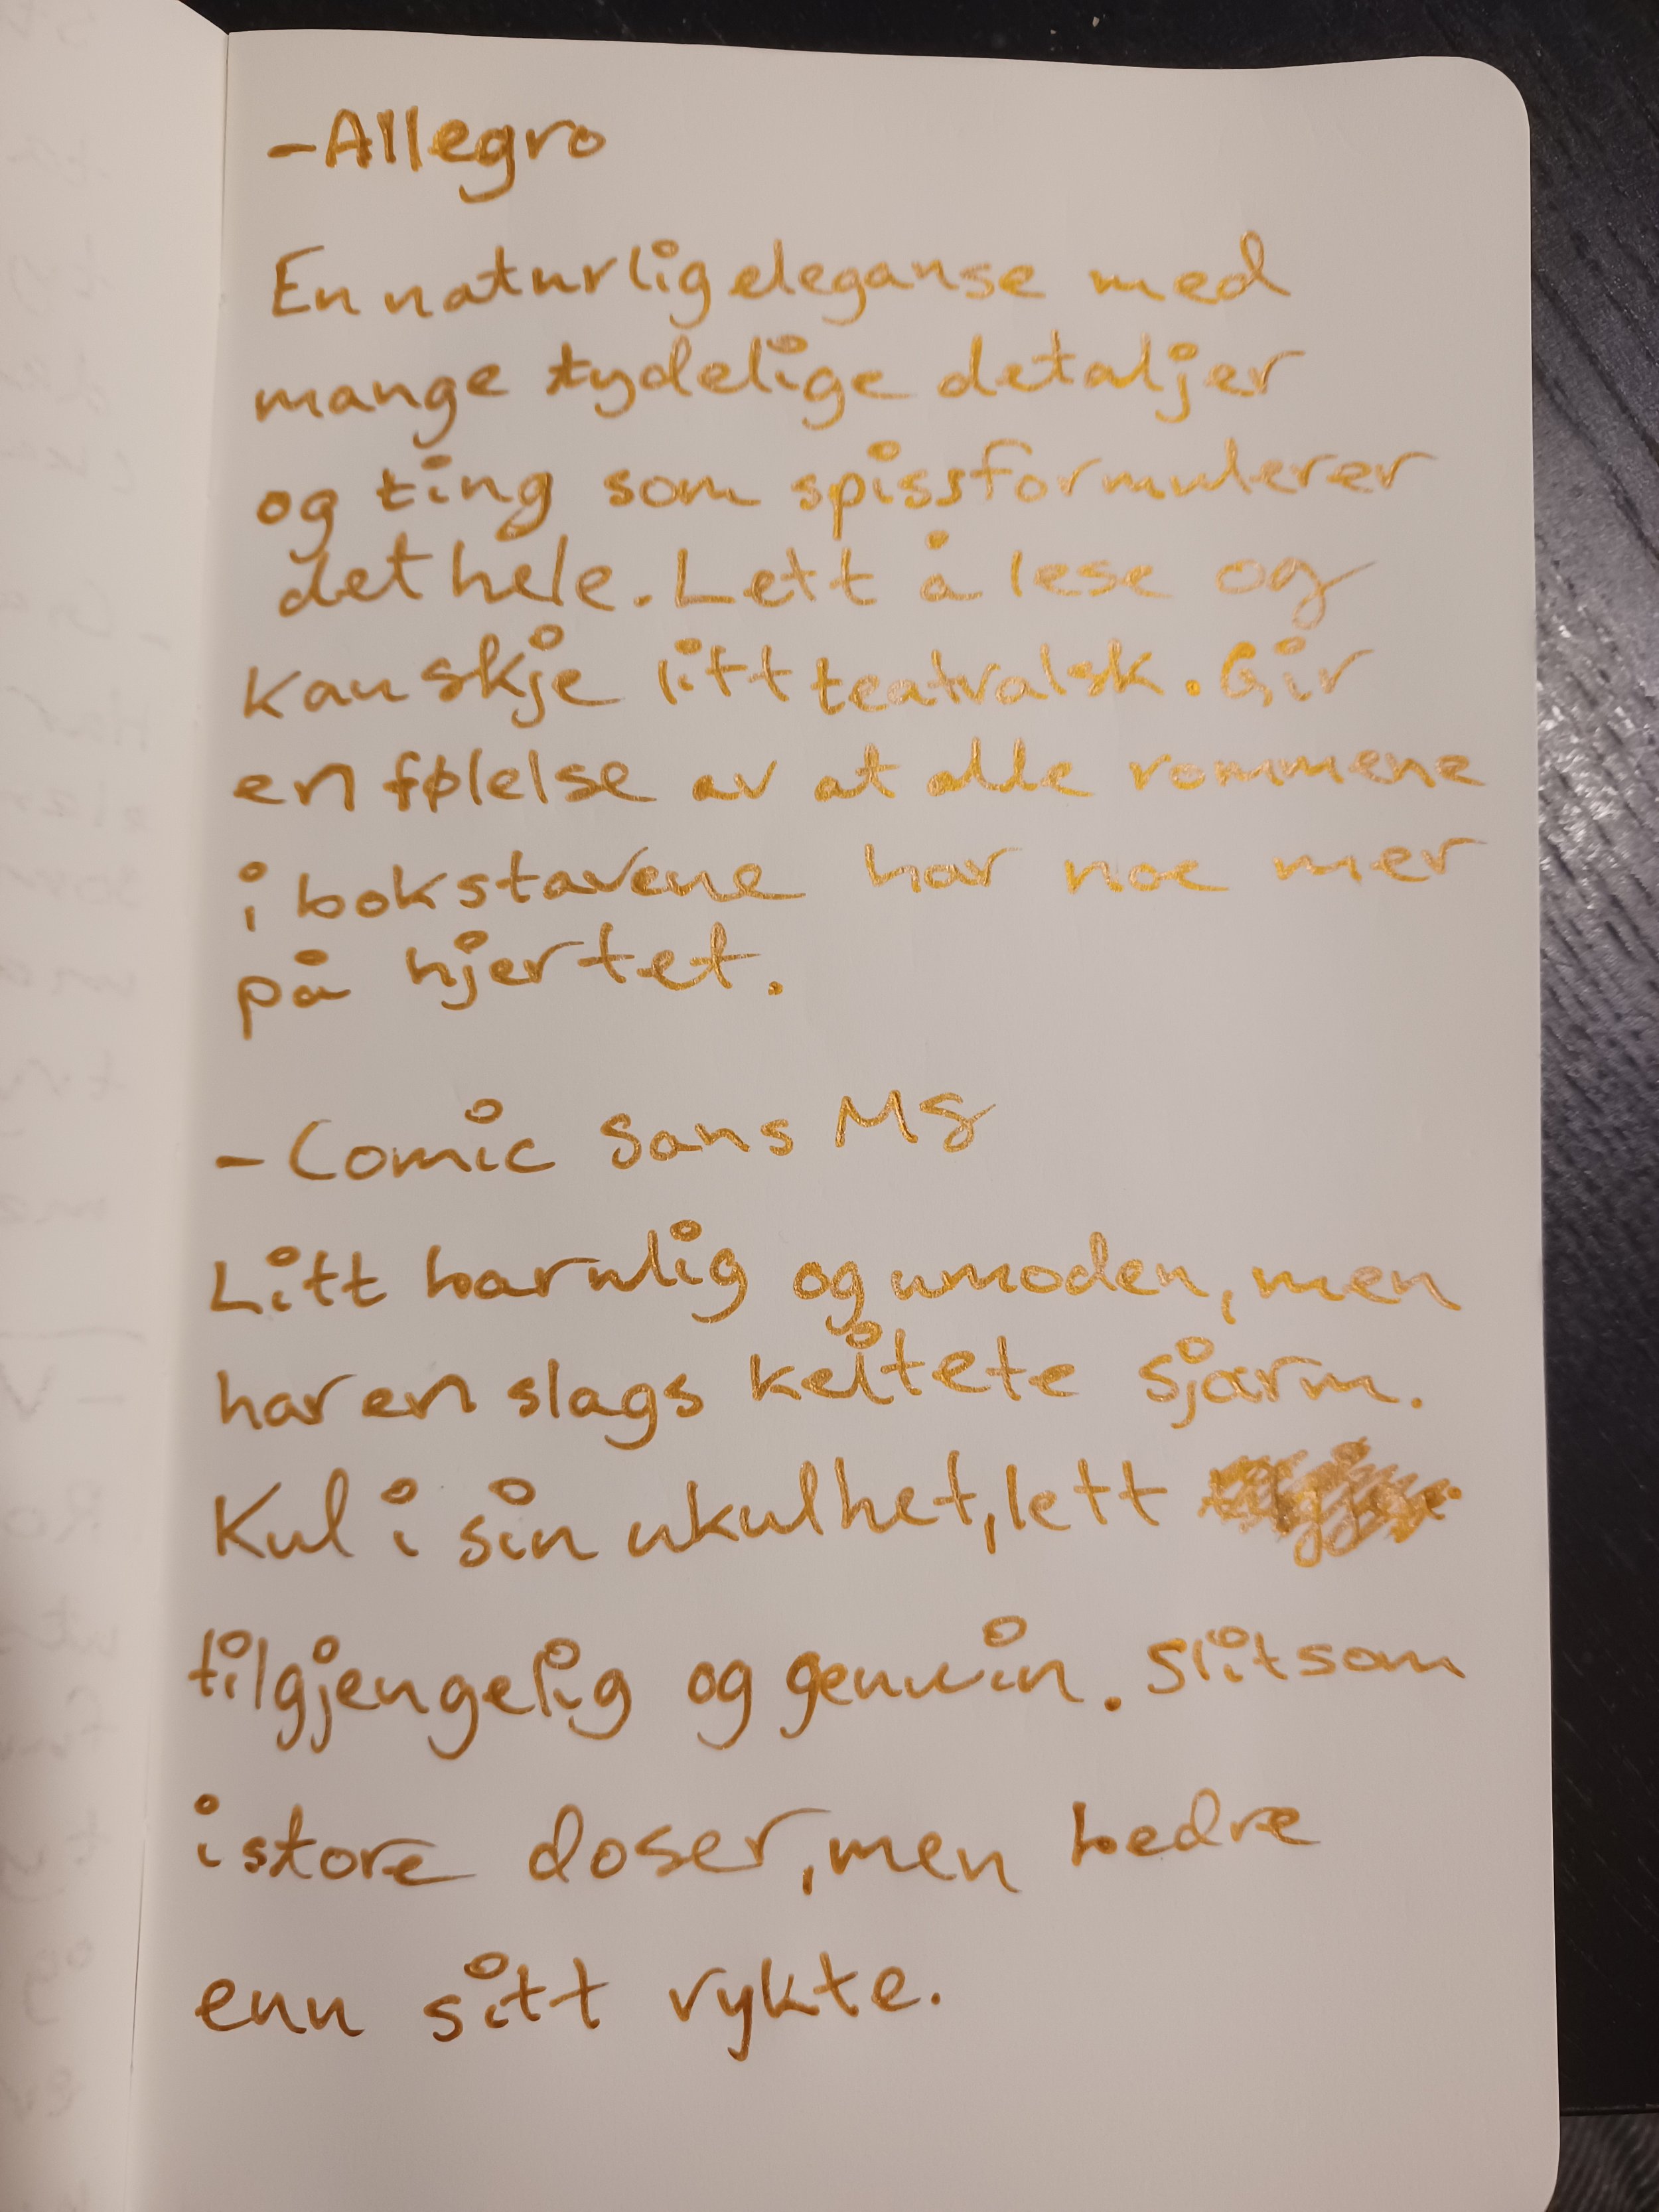 -Allegro
En naturlig eleganse med
mange tydelige detaljer
og ting som spissformulerer
det hele. Lett å lese og
kanskje litt teatralsk. Gir
en følelse av at alle rommene
i bokstavene har noe mer
på hjertet.
-Comic Sans MS
Litt barnlig og umoden, men
har en slags keitete sjarm.
Kul i sin ukulhet, lett
tilgjengelig og genuin. Slitsom
i store doser, men bedre
enn sitt rykte.